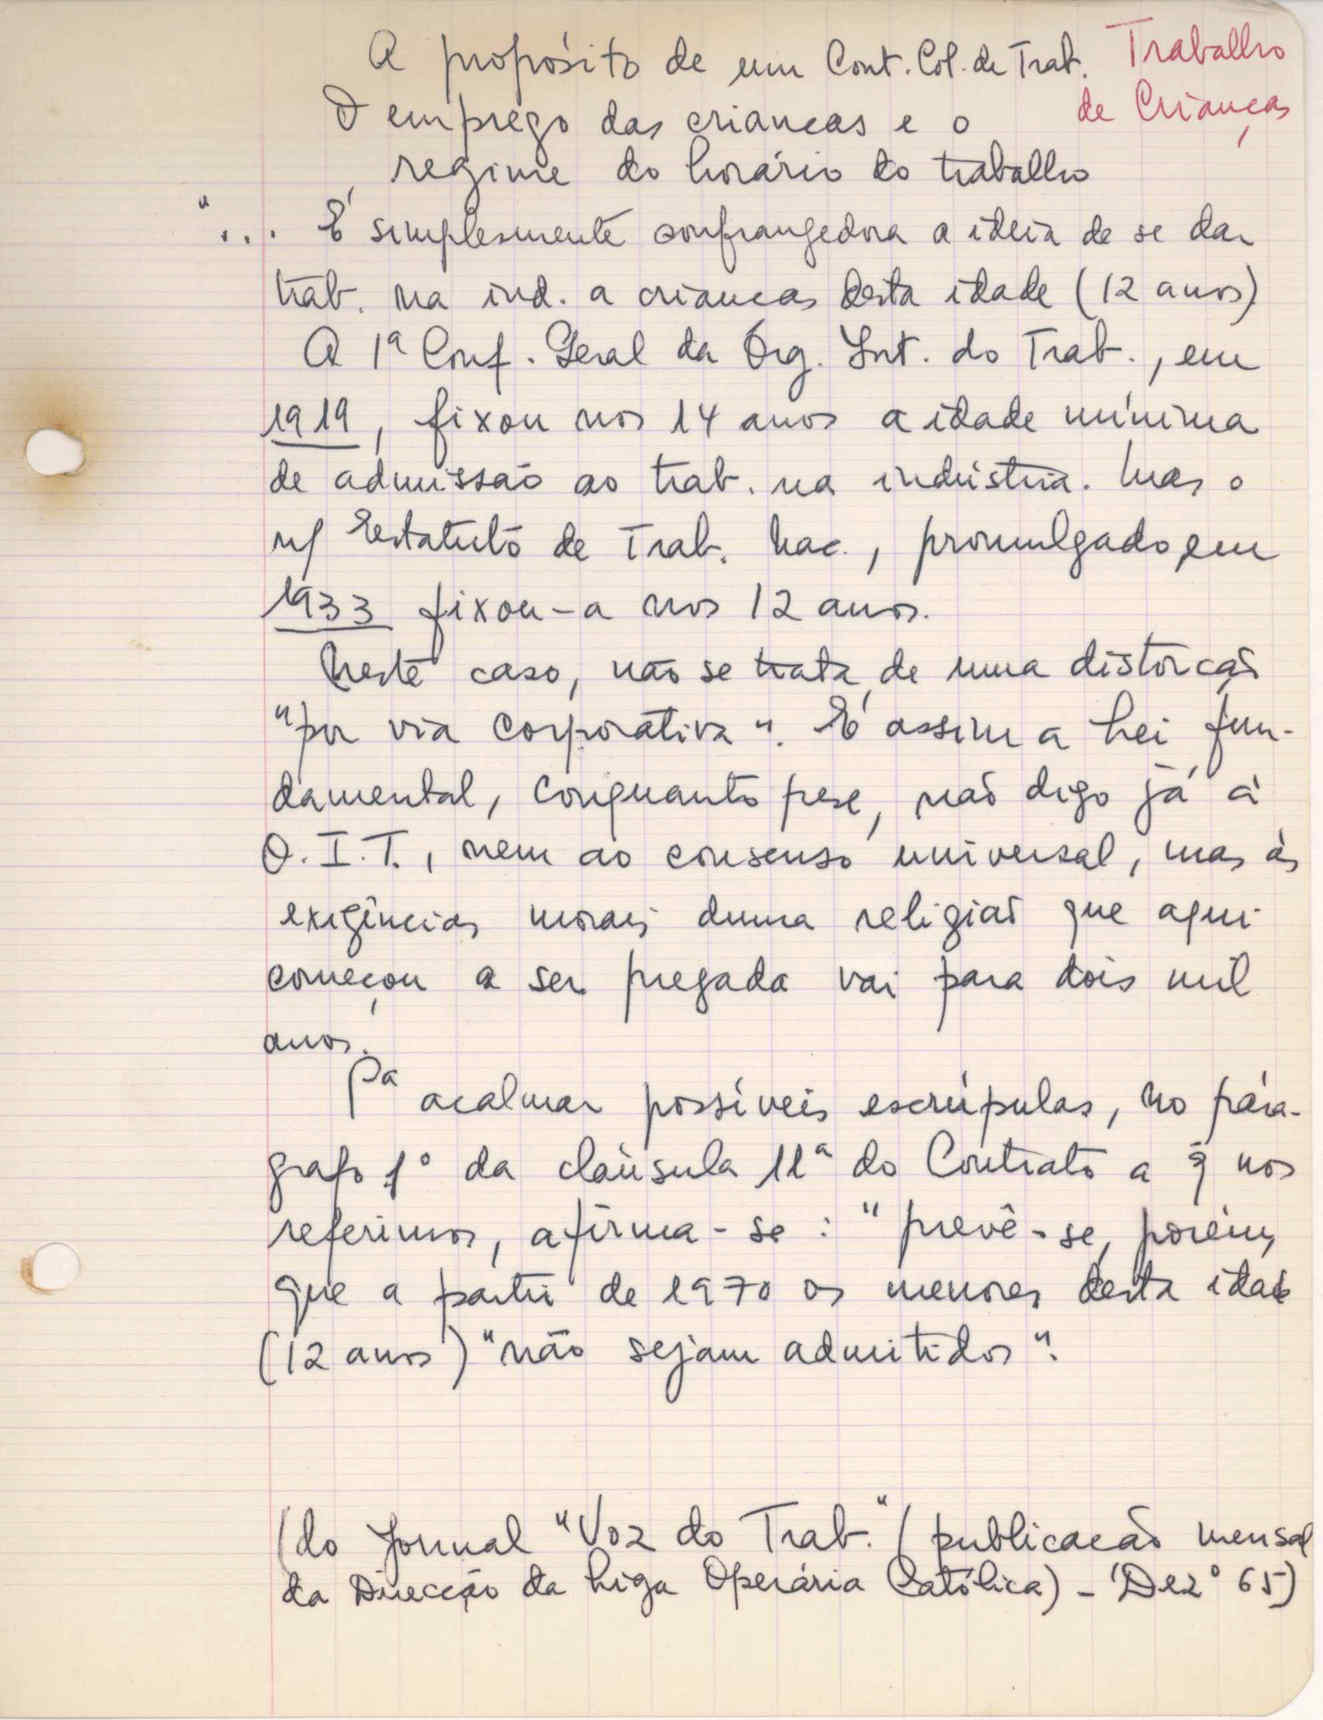 A propósito de um Cont. Col. de Trab. Trabalho
O emprego das crianças e o de Crianças
regime do horário do trabalho
"... É simplesmente confrangedora a ideia de se dar
trab. na ind. a crianças desta idade (12 anos)
A 1ª Conf. Geral da Org. Int. do Trab., em
1919, fixou nos 14 anos a idade mínima
de admissão ao trab. na indústria. Mas o
n/ Estatuto de Trab. Nac., promulgado em
1933 fixou-a nos 12 anos.
Neste caso, não se trata de uma distorção
"por via corporativa". É assim a Lei fun-
damental, conquanto pese, não digo já à
O.I.T., nem ao consenso universal, mas às
exigências morais duma religião que aqui
começou a ser pregada vai para dois mil
anos.
Pª acalmar possíveis escrúpulas, no pará-
grafo 1º da cláusula 11ª do Contrato a q̃ nos
referimos, afirma-se: "prevê-se, porém,
que a partir de 1970 os menores desta idade
(12 anos) "não sejam admitidos".
(do Jornal "Voz do Trab." (publicação mensal
da Direcção da Liga Operária Católica) - Dezº 65)